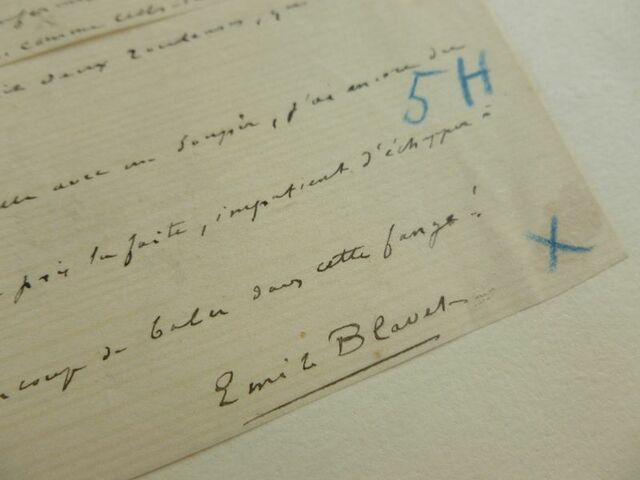 comme cette
deux rouleaux, que
avec un soupir, j'ai encore du
5 H
pris la fuite, impatient d'échapper à
coup de balai dans cette fange !
X
Emile Blavet